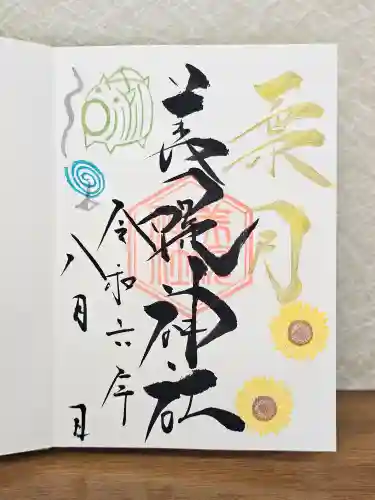 葉月
美幌神社
令和六年
八月 日